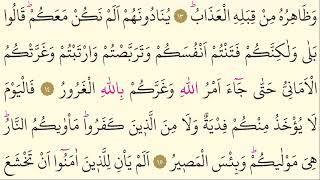 وَظَاهِرُهُ مِنْ قِبَلِهِ الْعَذَابُ ﴿١٣﴾ يُنَادُونَهُمْ اَلَمْ نَكُنْ مَعَكُمْ قَالُوا
بَلٰى وَلٰكِنَّكُمْ فَتَنْتُمْ اَنْفُسَكُمْ وَتَرَبَّصْتُمْ وَارْتَبْتُمْ وَغَرَّتْكُمُ
الْاَمَانِيُّ حَتّٰى جَٓاءَ اَمْرُ اللهِ وَغَرَّكُمْ بِاللهِ الْغَرُورُ ﴿١٤﴾ فَالْيَوْمَ
لَا يُؤْخَذُ مِنْكُمْ فِدْيَةٌ وَلَا مِنَ الَّذِينَ كَفَرُوا مَأْوٰيكُمُ النَّارُ
هِيَ مَوْلٰيكُمْ وَبِئْسَ الْمَصِيرُ ﴿١٥﴾ اَلَمْ يَأْنِ لِلَّذِينَ اٰمَنُٓوا اَنْ تَخْشَعَ